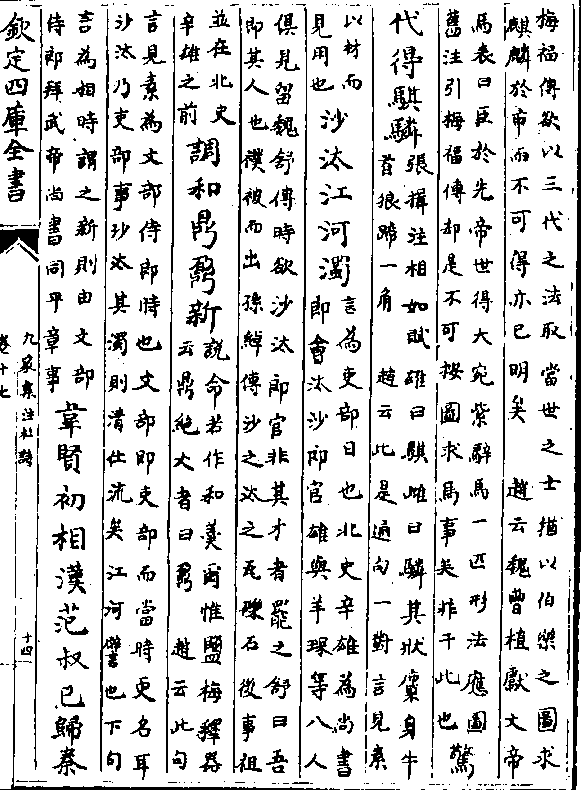 梅福傳欲以三代之法取當世之士猶以伯樂之圖求
麒麟於市而不可得亦已明矣 趙云魏曹植獻文帝
馬表曰臣於先帝世得大宛紫騂馬一匹形法應圖
舊注引梅福傳却是不可按圖求馬事矣非干此也
驚代得騏驎
張揖注相如賦雄曰騏雌曰驎其狀麋身牛
首狼蹄一角 趙云此是通句一對言見素
以材而
見用也
沙汰江河濁
言為吏部日也北史辛雄為尚書
郎會汰沙郎官雄與羊琛等八人
俱見留魏舒傳時欲沙汰郎官非其才者罷之舒曰吾
即其人也襆被而出孫綽傳沙之汰之瓦礫石後事祖
並在北史
辛雄之前
調和鼎鼐新
說命若作和羹爾惟鹽梅釋器
云鼎絶大者曰鼐 趙云此句
言見素為文部侍郎時也文部即吏部而當時更名耳
沙汰乃吏部事沙汰其濁則清仕流矣江河譬也下句
言為相時謂之新則由文部
侍郎拜武帝尚書同平章事
韋賢初相漢范叔已歸秦
欽定四庫全書
九家集注杜詩
卷十七
十四